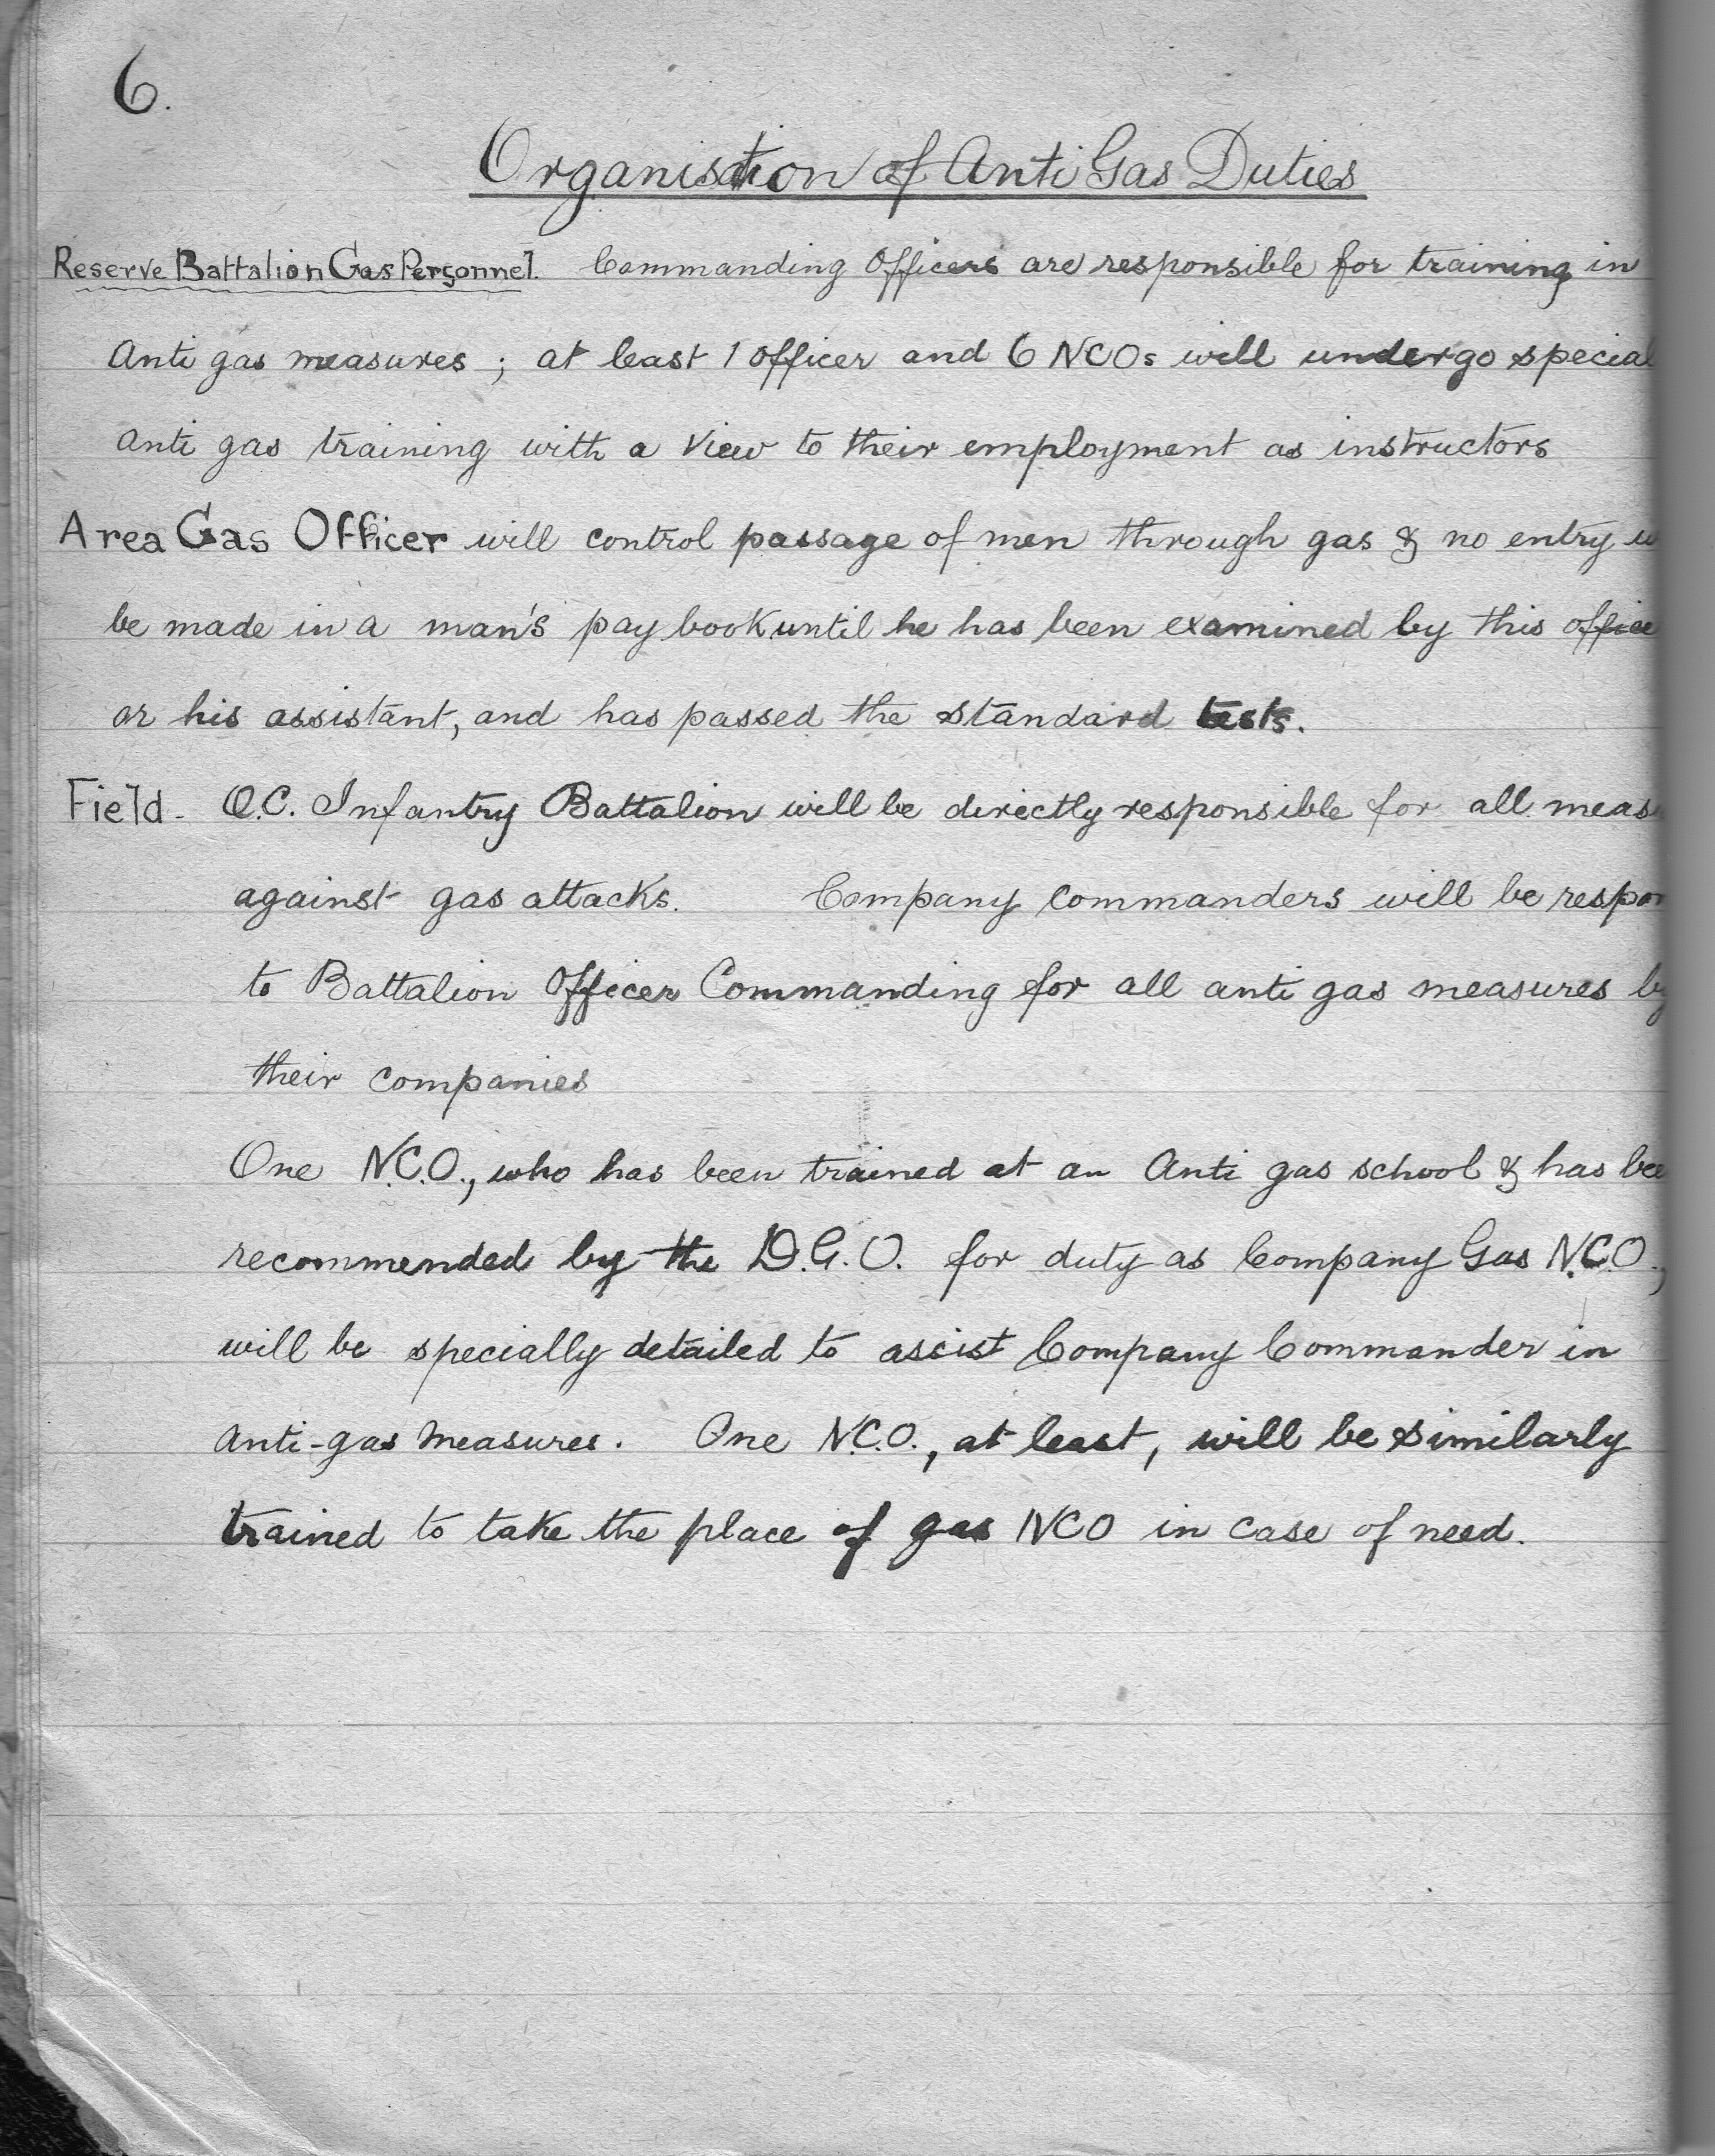 6.
Organisation of Anti Gas Duties
Reserve Battalion Gas Personnel. Commanding Officers are responsible for training in
Anti gas measures; at least 1 officer and 6 NCOs will undergo special
anti gas training with a view to their employment as instructors
Area Gas Officer will control passage of men through gas & no entry w
be made in a man's pay book until he has been examined by this office
or his assistant, and has passed the standard tests.
Field - O.C. Infantry Battalion will be directly responsible for all meas
against gas attacks. Company Commanders will be respon
to Battalion Officer Commanding for all anti gas measures by
their companies
One N.C.O., who has been trained at an Anti gas school & has bee
recommended by the D.G.O. for duty as Company Gas N.C.O.,
will be specially detailed to assist Company Commander in
Anti-gas measures. One N.C.O., at least, will be similarly
trained to take the place of gas NCO in case of need.